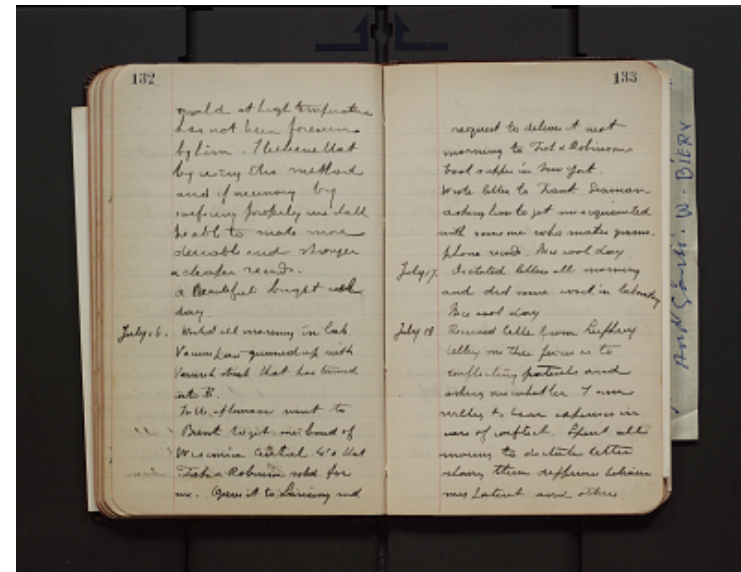 132
mould at high temperature
has not been foreseen
by him. I believe that
by using this method
and if necessary by
carefully we shall
be able to make more
durable and stronger
& cheaper records.
a Beautiful bright cool
day.
July 16. Worked all morning in lab.
Vacuum gummed up with
Varnish that has turned
into B.
In the afternoon went to
Brent to get me bond of
Wisconsin Central 4% that
Fisk & Robinson sold for
me. Gave it to and
133
request to deliver it next
morning to Fisk & Robinson
in New York.
Wrote letter to Frank Seaman
asking him to get me acquainted
with someone who makes gramo-
phone records. Nice cool day.
July 17. Dictated letters all morning
and did some work in laboratory
Nice cool day
July 18 Received letter from
telling me there is to
conflicting patents and
asking me whether I am
willing to bear expenses in
case of conflict. Spent all
morning to dictate letter
showing them difference between
my patent and others.
W. BIERY